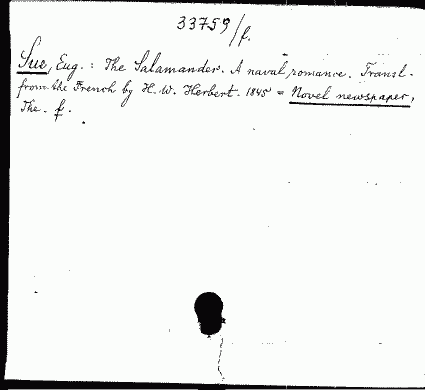 33759/f.
Sue, Eug. : The Salamander. A naval romance. Transl.
from the French by H. W. Herbert. 1845 = Novel newspaper,
The. f.